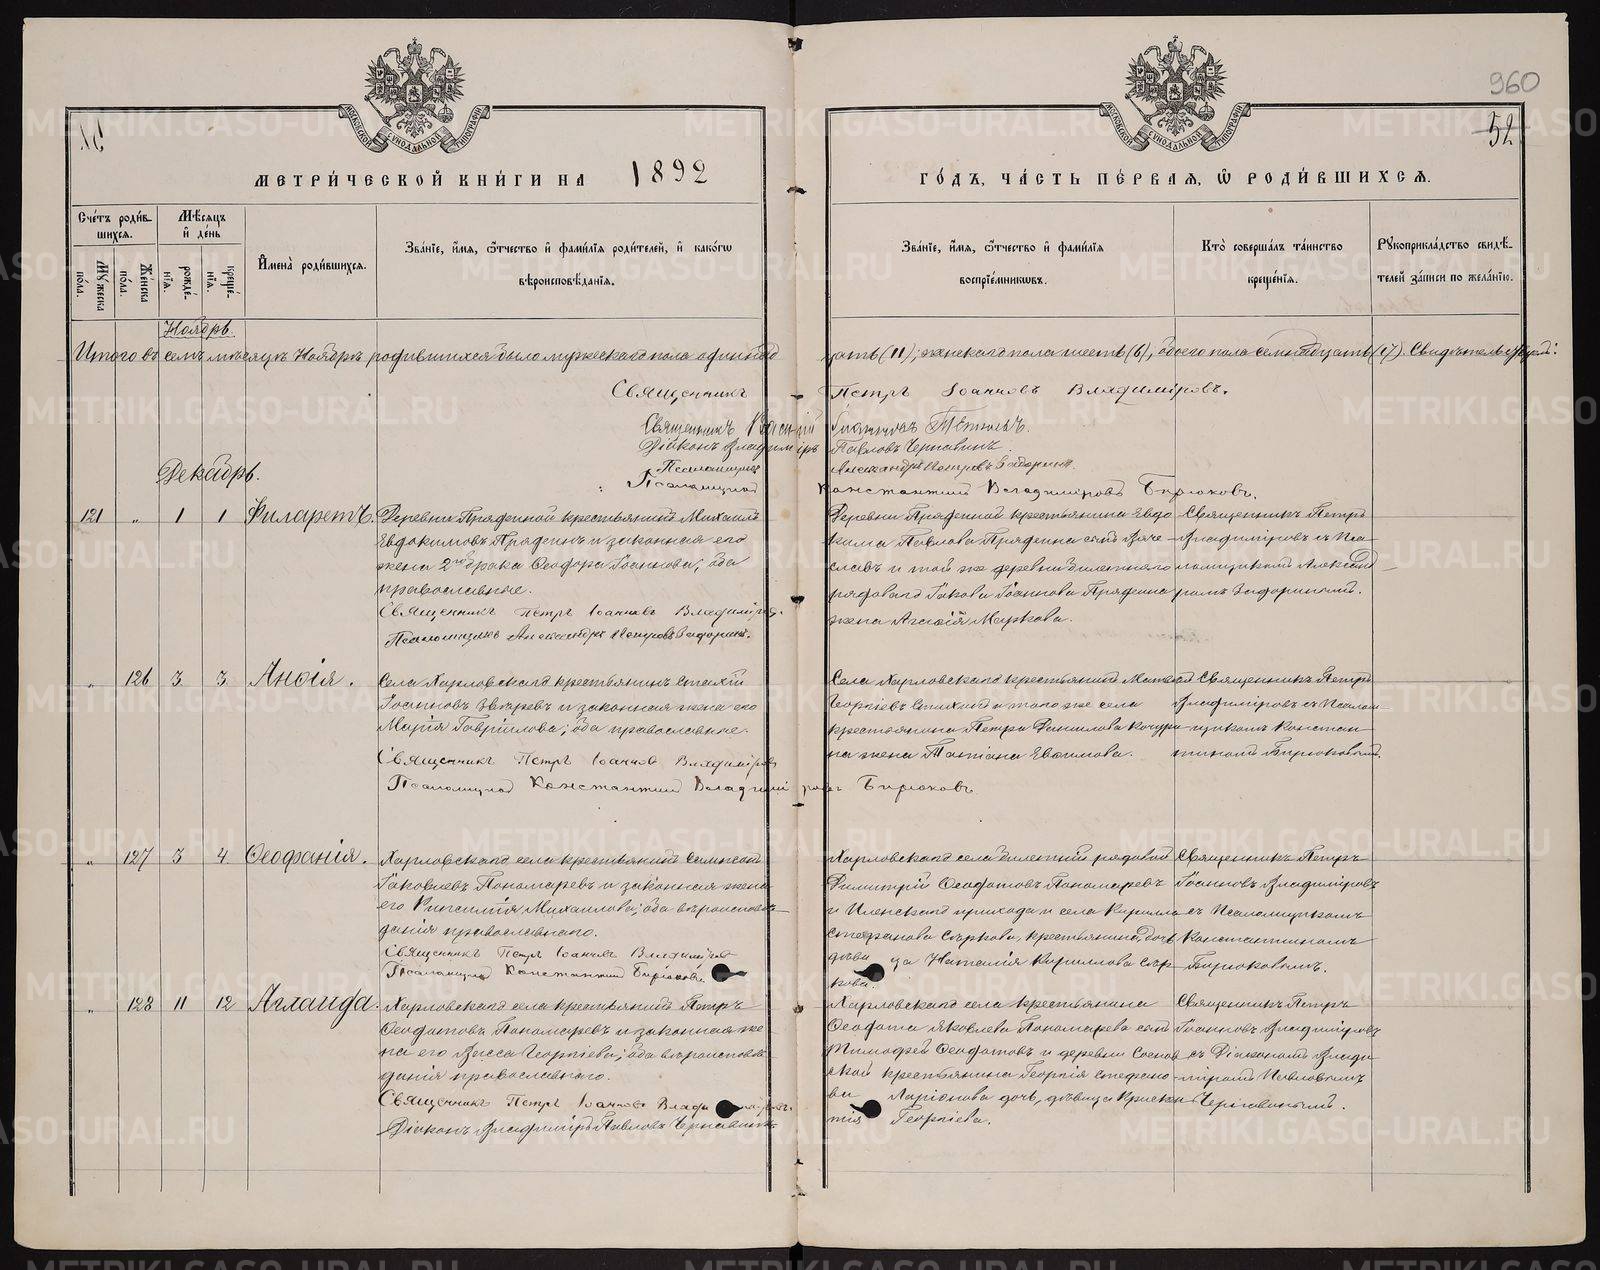 960
52
МЕТРИ́ЧЕСКОЙ КНИ́ГИ НА 1892
ГО́ДЪ, ЧА́СТЬ ПЕ́РВАЯ, Ѡ РОДИ́ВШИХСЯ.
Сче́тъ роди́вшихся.
Мꙋ́жеска по́ла.
Же́нска по́ла.
Мѣ́сяцъ и де́нь
рожде́нїя.
креще́нїя.
Имена̀ роди́вшихся.
Зва́нїе, и́мя, ѻ́тчество и фами́лїя роди́телей, и како́гѡ
вѣроисповѣ́данїя.
Зва́нїе, и́мя, ѻ́тчество и фами́лїя
воспрїе́мникѡвъ.
Кто̀ соверша́лъ та́инство
креще́нїя.
Рꙋкоприкла́дство свидѣ́-
телей за́писи по жела́нїю.
Ноябрь.
Итого въ семъ мѣсяцѣ Ноябрѣ родившихся было мужескаго пола одиннад
цать (11); женскаго пола шесть (6), обоего пола семнадцать (17). Свидѣтельствуемъ:
Священникъ Петръ Іоанновъ Владиміровъ.
Священникъ Василій
Діаконъ Владиміръ Павловъ Чернавинъ.
Псаломщикъ Александръ Петровъ
Псаломщикъ Константинъ Владиміровъ Бирюковъ.
Декабрь.
121 „ 1 1 Филаретъ.
Деревни Прядеиной крестьянинъ Михаилъ
Евдокимовъ Прядеинъ и законная его
жена 2го брака Ѳеодора Іоаннова; оба
православные.
Священникъ Петръ Іоанновъ Владиміровъ.
Псаломщикъ Александръ Петровъ
Деревни Прядеиной крестьянина Евдо
кима Павлова Прядеина сынъ Вяче-
славъ и той же деревни билетнаго
рядоваго Іакова Іоаннова Прядеина
жена Агаѳія Маркова.
Священникъ Петръ
Владиміровъ съ Пса-
ломщикомъ Александ
ромъ
„ 126 3 3 Анѳія.
Села Харловскаго крестьянинъ Стахій
Іоанновъ Звѣревъ и законная жена его
Марія Гавріилова; оба православные.
Священникъ Петръ Іоанновъ Владиміровъ
Псаломщикъ Константинъ Владиміровъ Бирюковъ
Села Харловскаго крестьянинъ Матвей
Георгіевъ и того же села
крестьянина Петра Данилова
на жена Татіана Евѳимова.
Священникъ Петръ
Владиміровъ съ Псалом
щикомъ Констан
тиномъ Бирюковымъ.
„ 127 3 4 Ѳеофанія.
Харловскаго села крестьянинъ Сампсонъ
Іаковлевъ Пономаревъ и законная жена
его Михаилова; оба вѣроисповѣ-
данія православнаго.
Священникъ Петръ Іоанновъ Владиміровъ
Псаломщикъ Константинъ Бирюковъ.
Харловскаго села билетный рядовой
Димитрій Ѳеодотовъ Пономаревъ
и прихода и села Кирилла
Стефанова Сѣркова, крестьянина, дочь
дѣвица Наталія Кириллова Сѣр-
кова.
Священникъ Петръ
Іоанновъ Владиміровъ
съ Псаломщикомъ
Константиномъ
Бирюковымъ.
„ 128 11 12 Аглаида.
Харловскаго села крестьянинъ Петръ
Ѳеодотовъ Пономаревъ и законная же
на его Васса Георгіева; оба вѣроисповѣ-
данія православнаго.
Священникъ Петръ Іоанновъ Владиміровъ.
Діаконъ Владиміръ Павловъ Чернавинъ
Харловскаго села крестьянина
Ѳеодота Яковлева Пономарева сынъ
Тимоѳей Ѳеодотовъ и деревни Соснов
ской крестьянина Георгія Стефано-
ва Ларіонова дочь, дѣвица Крискен
тія Георгіева.
Священникъ Петръ
Іоанновъ Владиміровъ
съ Діакономъ Влади-
міромъ Павловымъ
Чернавинымъ.
METRIKI.GASO-URAL.RU